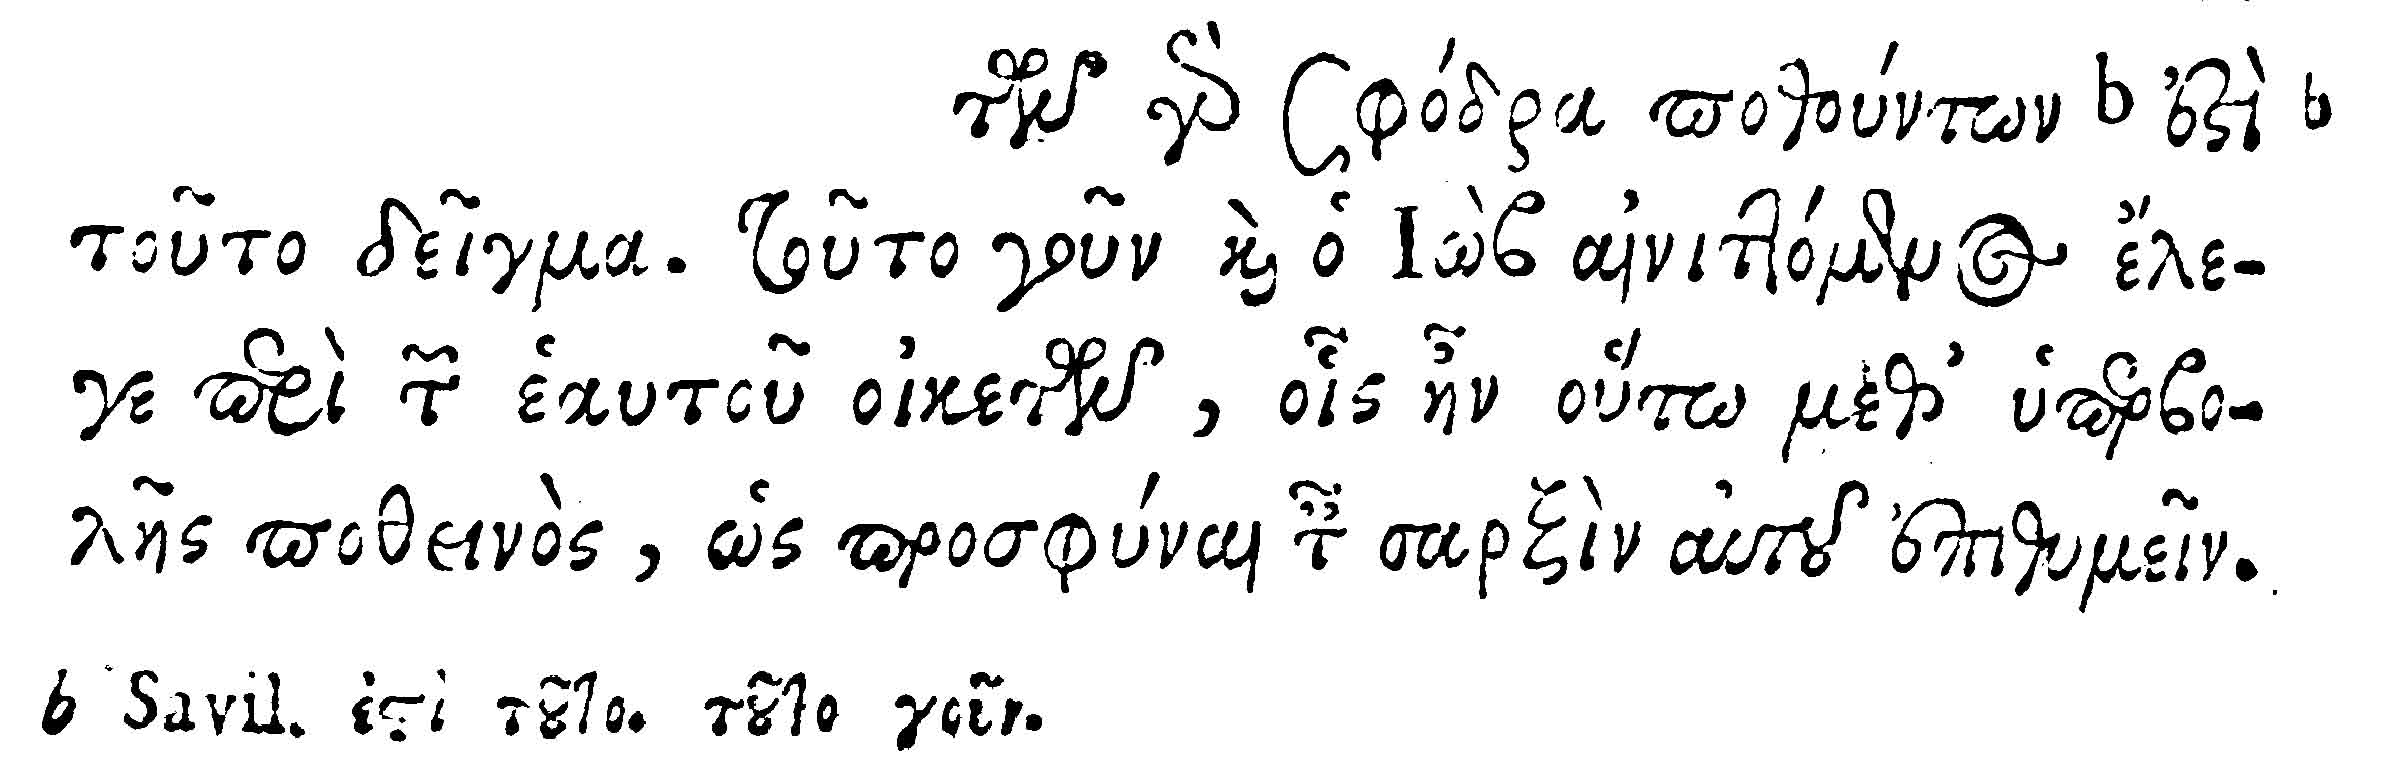 τῶν γὰρ σφόδρα ποθούντων b ἐστὶ b
τοῦτο δεῖγμα. Τοῦτο γοῦν καὶ ὁ Ἰὼβ αἰνιττόμενος ἔλε-
γε περὶ τῶν ἑαυτοῦ οἰκετῶν, οἷς ἦν οὕτω μεθ’ ὑπερβο-
λῆς ποθεινὸς, ὡς προσφῦναι ταῖς σαρξὶν αὐτοῦ ἐπιθυμεῖν.
b Savil. ἐστὶ τοῦτο. τοῦτο γοῦν.